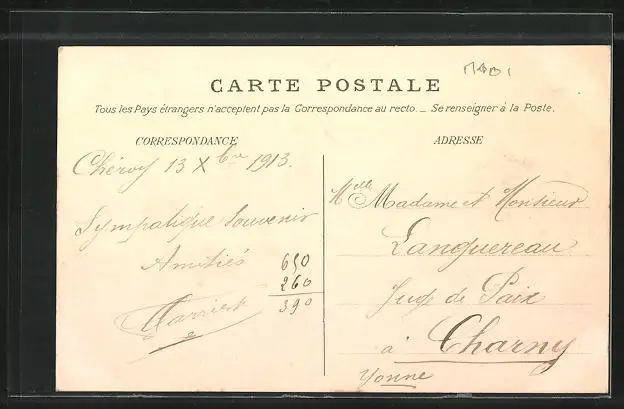 CARTE POSTALE
Tous les Pays étrangers n'acceptent pas la Correspondance au recto. _ Se renseigner à la Poste.
CORRESPONDANCE
ADRESSE
Chéroy 13 Xbre 1913.
Sympatique Souvenir
Amitiés
650
260
390
Mlle Madame et Monsieur
Languereau
Juge de Paix
à Charny
Yonne